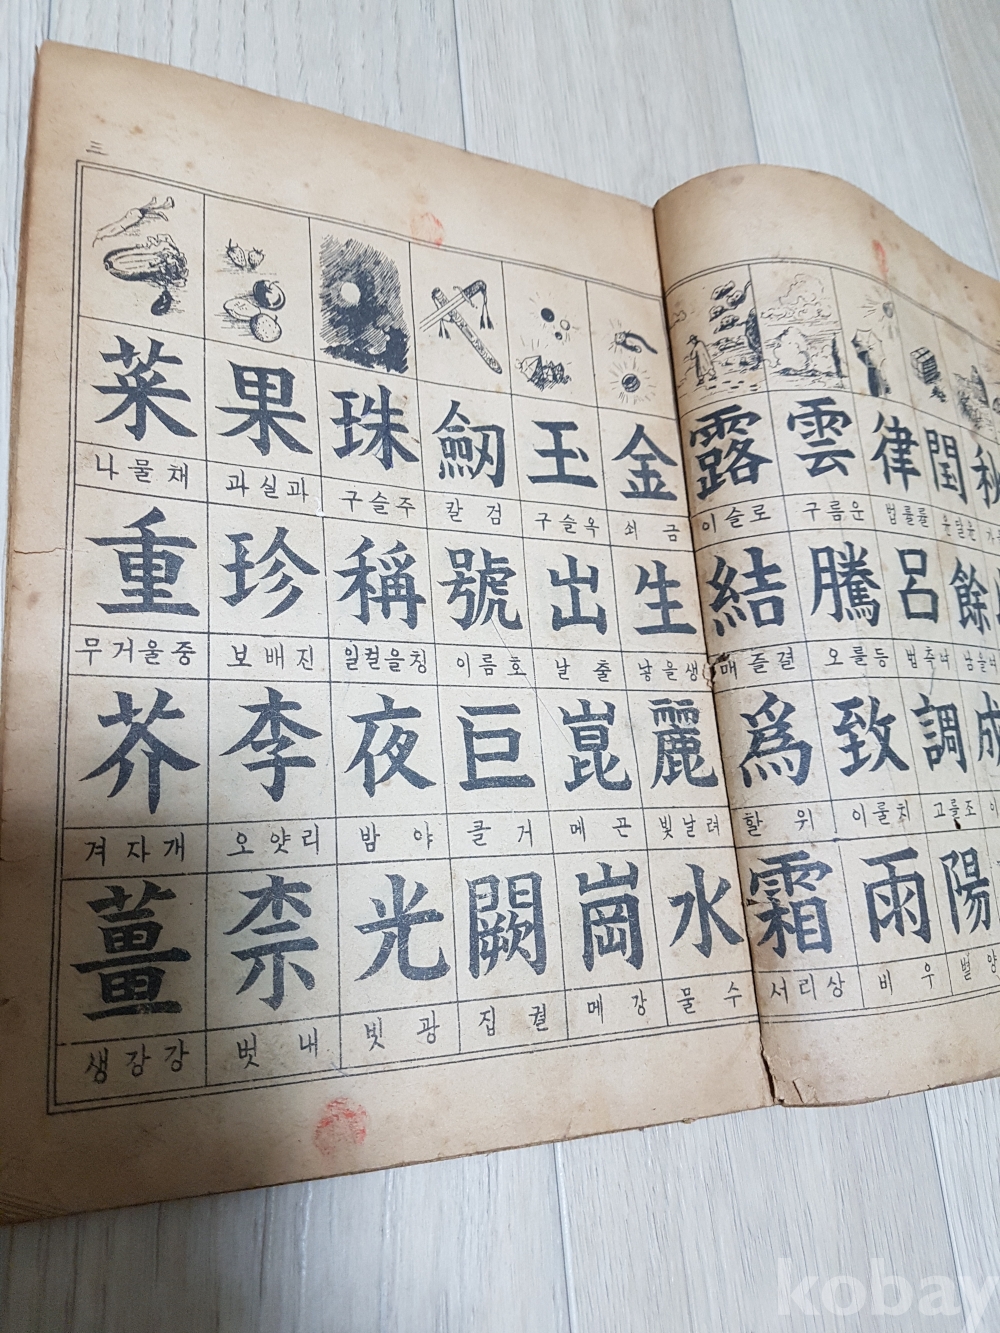 秋
閏
윤달윤
餘
남을녀
成
律
법률률
呂
법추녀
調
고를조
陽
볕양
雲
구름운
騰
오를등
致
이룰치
雨
비우
露
이슬로
結
매즐결
爲
할위
霜
서리상
金
쇠금
生
낳을생
麗
빛날려
水
물수
玉
구슬옥
出
날출
崑
메곤
崗
메강
劒
칼검
號
이름호
巨
클거
闕
집궐
珠
구슬주
稱
일컬을칭
夜
밤야
光
빛광
果
과실과
珍
보배진
李
오얏리
柰
벗내
菜
나물채
重
무거울중
芥
겨자개
薑
생강강
三
kobay